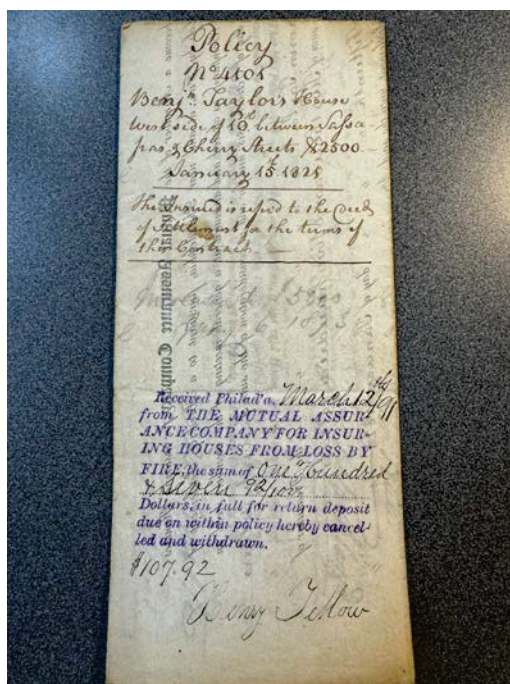 Policy
No 4505
Benjn. Taylor's House
west side of 10th between Sassa-
fras & Cherry Streets $2500
January 15th 1825
The Insured is refer'd to the Deed
of Settlement for the terms of
this Contract
Received Philad'a, March 12th/91
from THE MUTUAL ASSUR-
ANCE COMPANY FOR INSUR-
ING HOUSES FROM LOSS BY
FIRE, the sum of One Hundred
& Seven 92/100
Dollars, in full for return deposit
due on within policy hereby cancel-
led and withdrawn.
$107.92
Henry